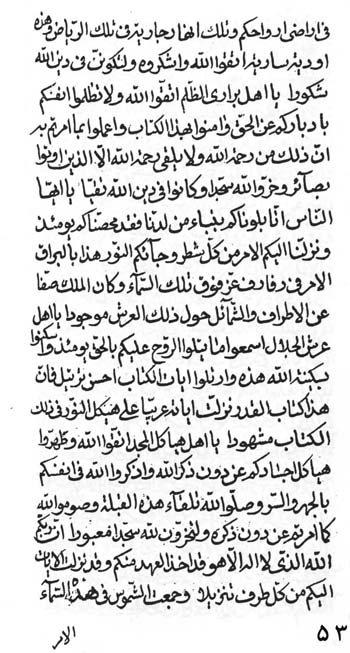 فی اراضی ارواحکم وتلک الانهار جاریة فی تلک الریاض وهذه
اودیة ساریة اتقوا الله واشکروه ولتکونن فی دین الله
شکورا یا اهل براری الظلم اتقوا الله ولا تظلموا انفسکم
بادبارکم عن الحق وامنوا بهذا الکتاب واعملوا بما امرتم به
ان ذلک من رحمة الله ولا یلقی رحمة الله الا الذین اوتوا
بصائر وخروا لله سجدا وکانوا فی دین الله نقیا یا ایها
الناس انا بلوناکم بنباء من لدنا فقد محصناکم یومئذ
ونزلنا الیکم الامر من کل شطر وجائکم النور هذا بالبراق
الامر فی رفارف عز فوق تلک السماء وکان الملک صفا
عن الاطراف والشمائل حول ذلک العرش موجودا یا اهل
عرش الجلال اسمعوا ما یتلوا الروح علیکم بالحق یومئذ واسکنوا
بسکینة الله هذه وارتلوا ایات الکتاب احسن ترتیل فان
هذا کتاب القدر نزلت ایاته عربیا علی هیکل النور فی ذلک
الکتاب مشهودا یا اهل هیاکل المجد اتقوا الله وطهروا
هیاکل اجسادکم عن دون ذکر الله واذکروا الله فی انفسکم
بالجهر والسر وصلوا لله تلقاء هذه القبلة وصوموا لله
کما امرتم عن دون ذکره ولتخرون لله سجدا معبودا ان ربکم
الله الذی لا اله الا هو قد اخذ العهد منکم وقد نزلت الایات
الیکم من کل طرف تنزیلا وجمعت الشموس فی هذه السماء
الامر
۵۳